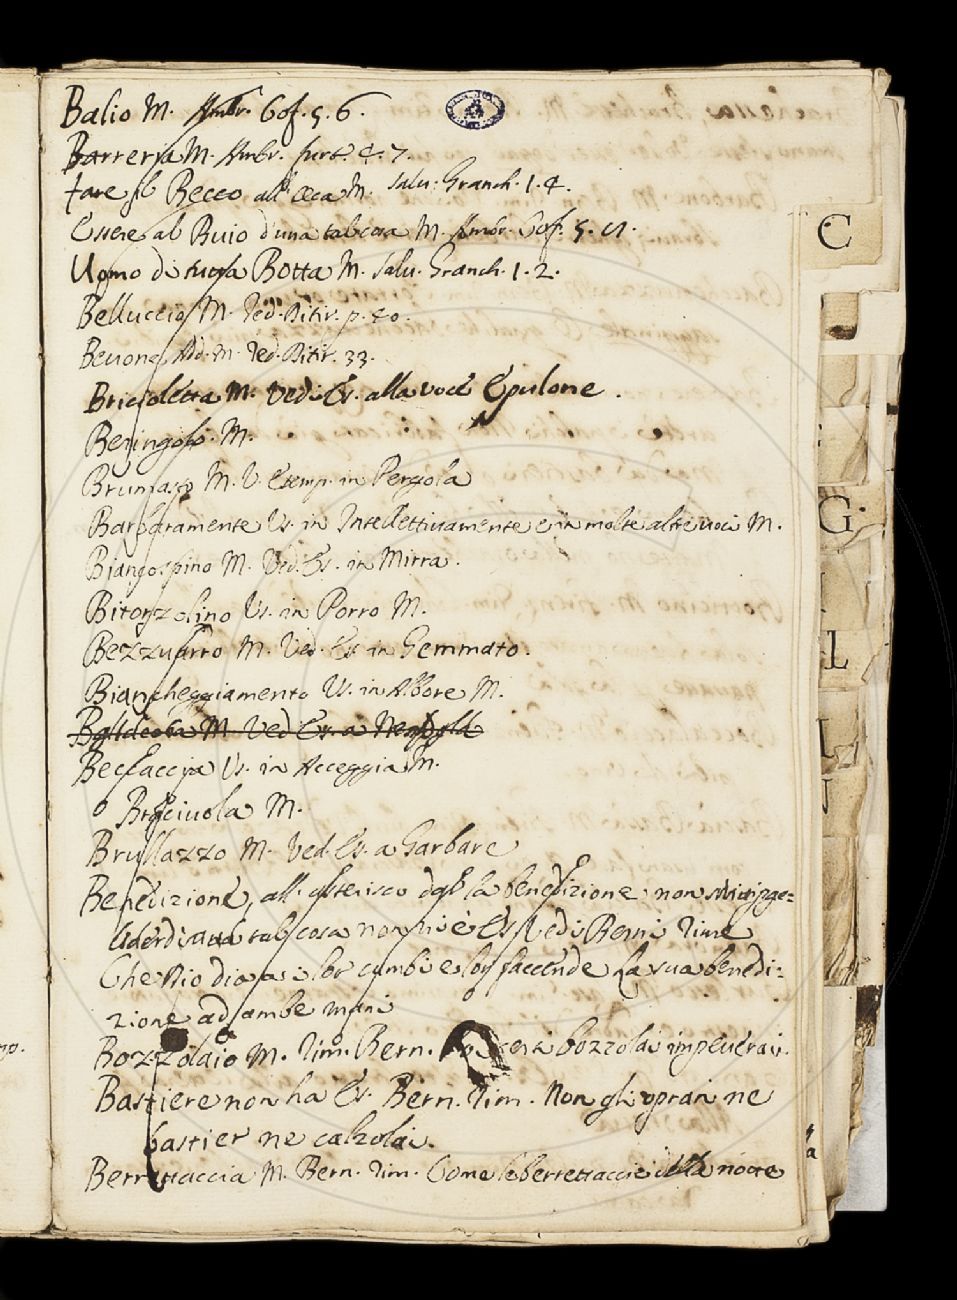 Balio M. Ambr. Cof. 5. 6.
Barreria M. Ambr. furt. 4. 7.
fare il Becco all'oca M. Salv. Granch. 1. 4.
Essere al Buio d'una tal cosa M. Ambr. Cof. 5.
Uomo di tutta Botta M. Salv. Granch. 1. 2.
Belluccio M. Red. Ditir. p. 40.
Bevone Add. M. Red. Ditir. 33.
Bricioletta M. Vedi Es. alla voce Epulone.
Beringolo. M.
Brunfaso M. V. Esemp. in Pergola
Barbaramente Es. in Intellettivamente e in molte altre voci M.
Biancospino M. Ved. Es. in Mirra.
Bitorzolino Es. in Porro M.
Bezzuarro M. Ved. Es. in Gemmato.
Biancheggiamento Es. in Albore M.
M. Ved Es. a
Beccaccia Es. in Acceggia M.
o Braciuola M.
Brullazzo M. Ved. Es. a Garbare
Benedizione, all'asterisco dar la benedizione non
tal cosa non vi è Es. Vedi Berni Rime
Che Dio dia a i lor cambi e lor faccende La sua benedi:
zione ad ambe mani
Bozzolaio M. Rim. Bern. bozzolai impeverai.
Bastiere non ha Es. Bern. Rim. Non gli oprain ne
bastier ne calzolai.
Berrettaccia M. Bern. Rim. Come le berrettaccie della notte
C
G.
L